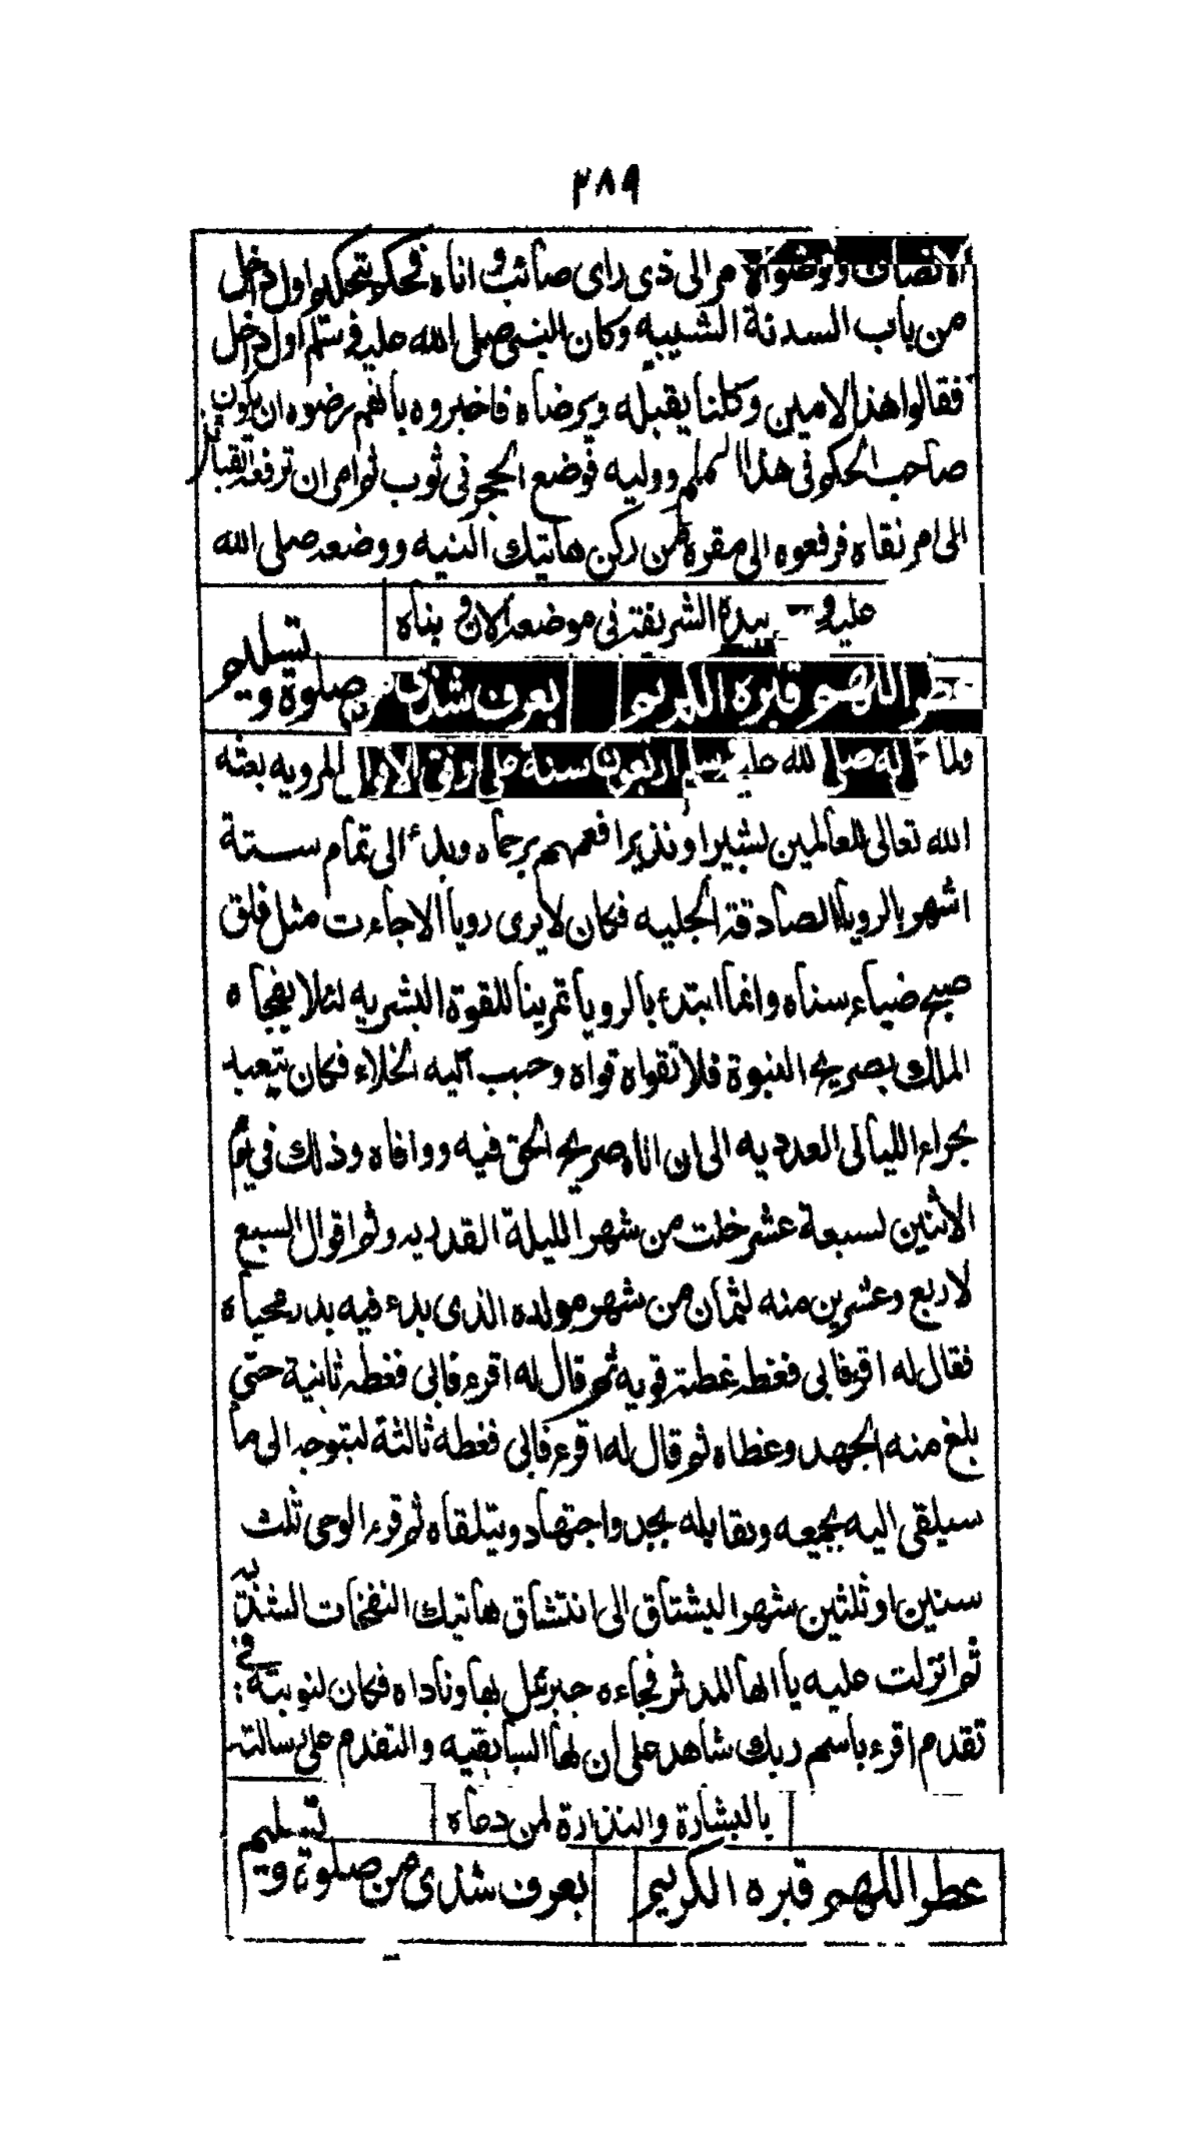 ٢٨٩
الانصاف وفوضوا الامر الى ذى راى صائب واناه فحكم بتحكيم اول داخل
من باب السدنة الشيبيه وكان النبى صلى الله عليه وسلم اول داخل
فقالوا هذا الامين وكلنا يقبله ويرضاه فاخبروه بانهم رضوه ان يكون
صاحب الحكم فى هذا الملم ووليه فوضع الحجر فى ثوب ثم امر ان ترفعه القبائل
الى مرتقاه فرفعوه الى مقره من ركن هاتيك البنيه ووضعه صلى الله
عليه و بيده الشريفة فى موضعه الآن و بناه
عطر اللهم قبره الكريم بعرف شذى من صلوة وتسليم
ولما له صلى الله عليه وسلم اربعون سنة على وفق الاقوال المرويه بعثه
الله تعالى للعالمين بشيرا ونذيرا فعمهم برحماه وبدء الى تمام ستة
اشهر بالرويا الصادقة الجليه فكان لا يرى رويا الا جاءت مثل فلق
صبح ضياء سناه وانما ابتدئ بالرويا تمرينا للقوة البشريه لئلا يفجاه
الملك بصريح النبوة فلا تقواه قواه وحبب اليه الخلاء فكان يتعبد
بحراء الليالى العدديه الى ان اتاه صريح الحق فيه ووافاه وذلك فى يوم
الاثنين لسبعة عشر خلت من شهر الليلة القدريه وثم اقوال السبع
لاربع وعشرين منه لثمان من شهر مولده الذى بدء فيه بدر محياه
فقال له اقرء فابى فغطه غطة قويه ثم قال له اقرء فابى فغطه ثانية حتى
بلغ منه الجهد وغطاه ثم قال له اقرء فابى فغطه ثالثة ليتوجه الى ما
سيلقى اليه بجميعه ويقابله بجد واجتهاد ويتلقاه ثم فتر الوحى ثلث
سنين او ثلثين شهرا ليشتاق الى انتشاق هاتيك النفحات الشذيه
ثم انزلت عليه يا ايها المدثر فجاءه جبرئيل بها وناداه فكان لنوبته فى
تقدم اقرء باسم ربك شاهد على ان لها السابقيه والتقدم على رسالته
بالبشارة والنذارة لمن دعاه
عطر اللهم قبره الكريم بعرف شذى من صلوة وتسليم